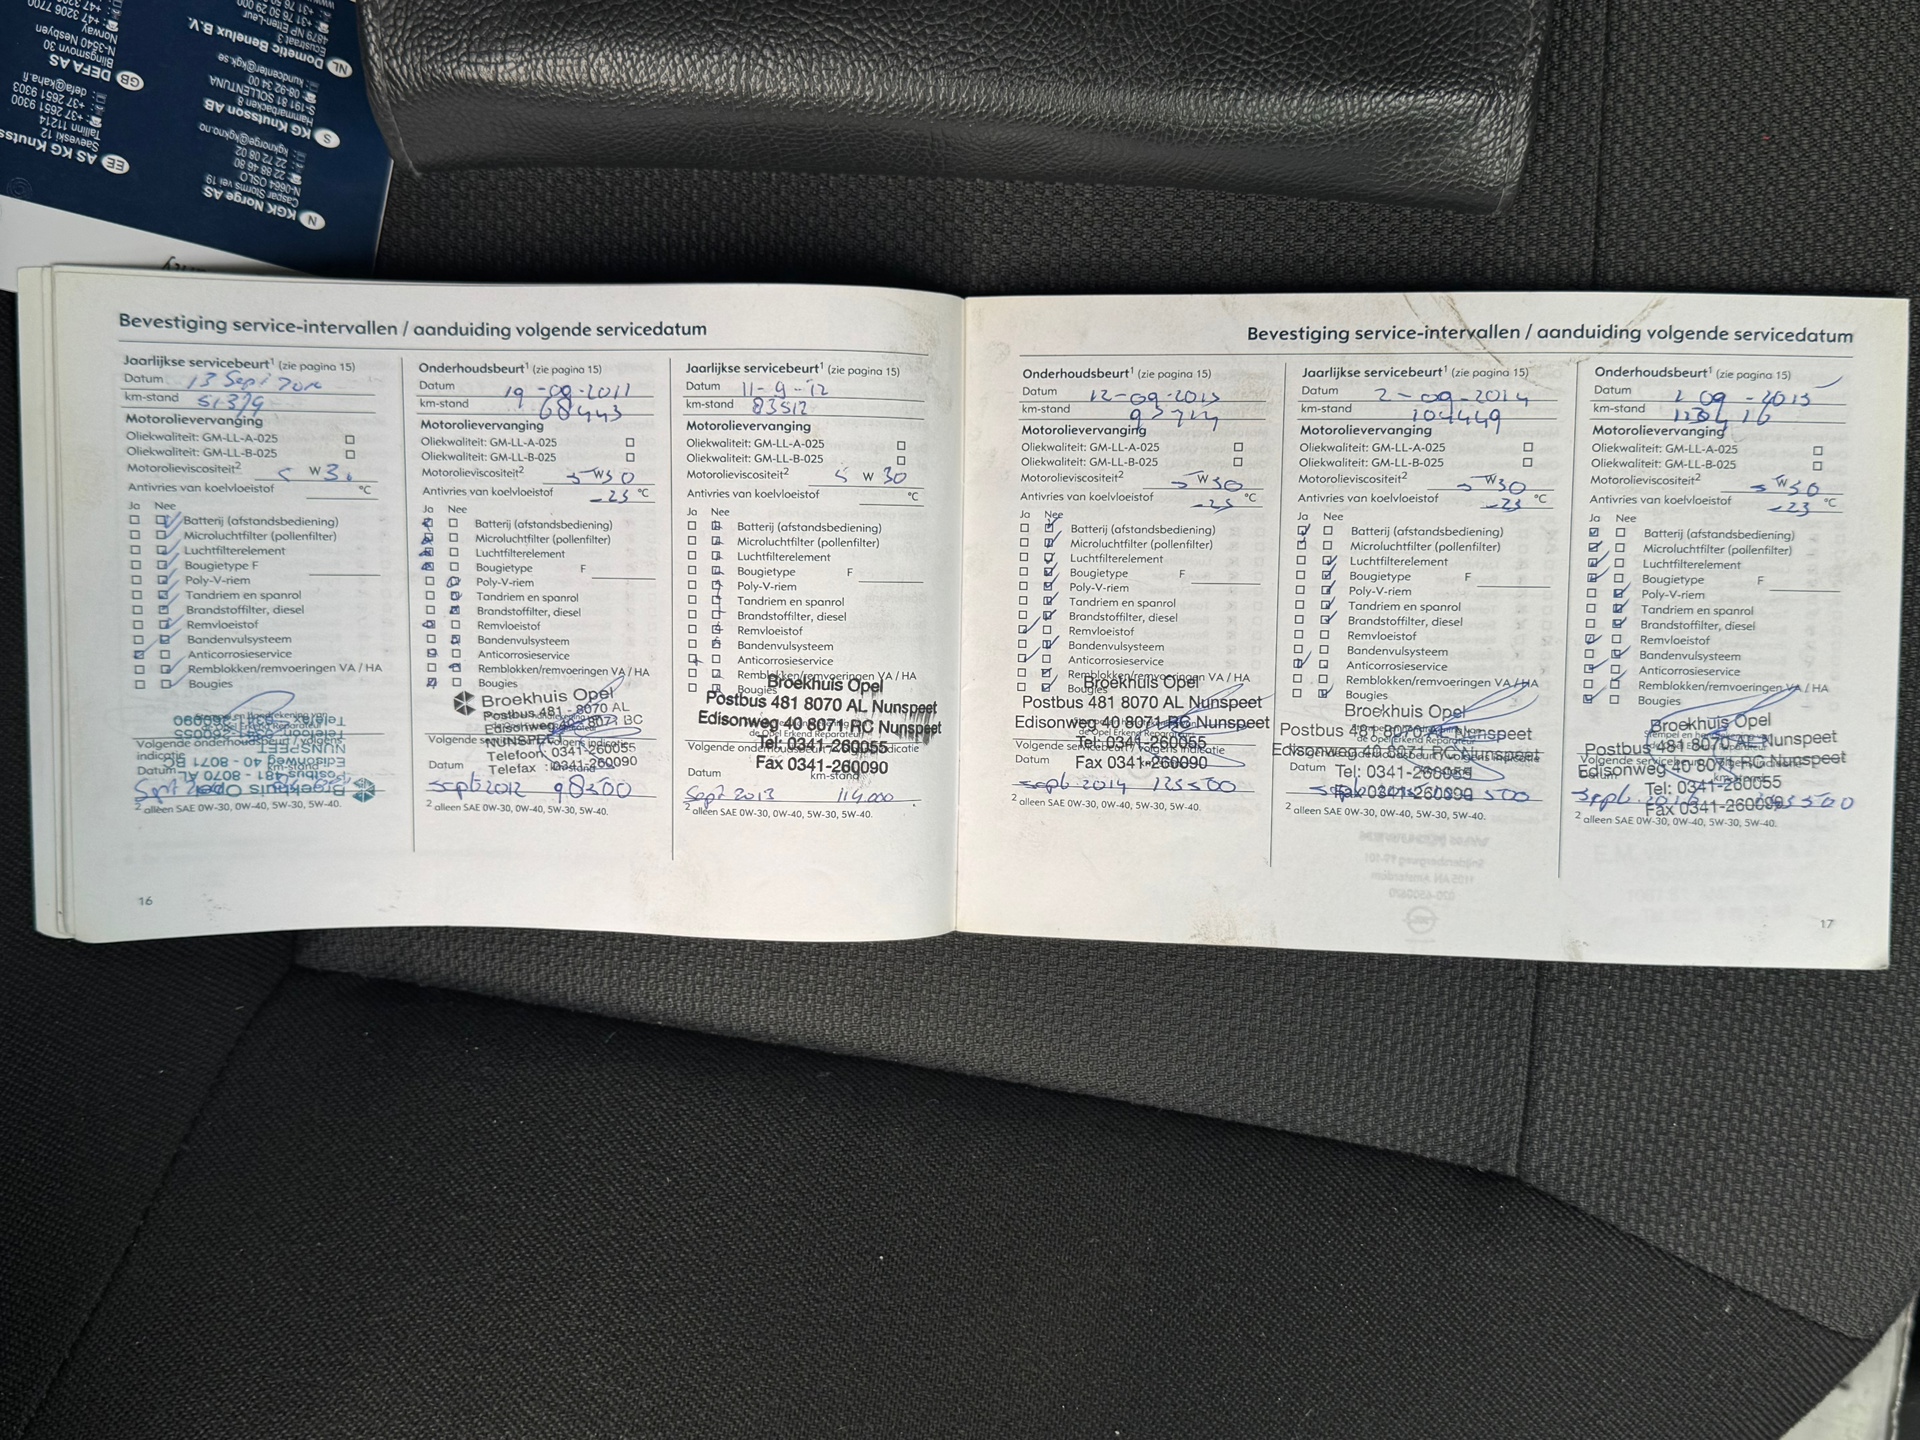 AS KG Knutss
Saeveski 12
Tallinn 11214
+37 2651 9300
+37 2651 9303
defa@kaha.fi
GB DEFA AS
Blingsmovn 30
N-3540 Nesbyen
Norway
+47 3206 7700
N KGK Norge AS
Caspar Storms vei 19
N-0664 OSLO
22 88 46 80
22 72 08 02
kgknorge@kgk.no
S KG Knutsson AB
Hammarbacken 8
S-191 81 SOLLENTUNA
08-92 34 00
kundcenter@kgk.se
NL Dometic Benelux B.V.
Ecustraat 3
4879 NP Etten-Leur
+31 76 50 29 000
Bevestiging service-intervallen / aanduiding volgende servicedatum
Jaarlijkse servicebeurt¹ (zie pagina 15)
Datum 13 Sept
km-stand 51379
Motorolievervanging
Oliekwaliteit: GM-LL-A-025
Oliekwaliteit: GM-LL-B-025
Motorolieviscositeit² 5 W 30
Antivries van koelvloeistof °C
Ja Nee
Batterij (afstandsbediening)
Microluchtfilter (pollenfilter)
Luchtfilterelement
Bougietype F
Poly-V-riem
Tandriem en spanrol
Brandstoffilter, diesel
Remvloeistof
Bandenvulsysteem
Anticorrosieservice
Remblokken/remvoeringen VA / HA
Bougies
Broekhuis Opel
Postbus 481 - 8070 AL
Edisonweg 40 - 8071 BC
NUNSPEET
Telefoon 0341-260055
Telefax 0341-260090
Volgende onderhoudsbeurt / volgens
indicatie
Datum km-stand
Sept
² alleen SAE 0W-30, 0W-40, 5W-30, 5W-40.
16
Onderhoudsbeurt¹ (zie pagina 15)
Datum 19-09-2011
km-stand 68443
Motorolievervanging
Oliekwaliteit: GM-LL-A-025
Oliekwaliteit: GM-LL-B-025
Motorolieviscositeit² 5 W 30
Antivries van koelvloeistof -25 °C
Ja Nee
Batterij (afstandsbediening)
Microluchtfilter (pollenfilter)
Luchtfilterelement
Bougietype F
Poly-V-riem
Tandriem en spanrol
Brandstoffilter, diesel
Remvloeistof
Bandenvulsysteem
Anticorrosieservice
Remblokken/remvoeringen VA / HA
Bougies
Broekhuis Opel
Postbus 481 - 8070 AL
Edisonweg 40 - 8071 BC
NUNSPEET
Telefoon 0341-260055
Telefax : 0341-260090
Datum
sept 2012 98500
² alleen SAE 0W-30, 0W-40, 5W-30, 5W-40.
Jaarlijkse servicebeurt¹ (zie pagina 15)
Datum 11-9-12
km-stand 83512
Motorolievervanging
Oliekwaliteit: GM-LL-A-025
Oliekwaliteit: GM-LL-B-025
Motorolieviscositeit² 5 W 30
Antivries van koelvloeistof °C
Ja Nee
Batterij (afstandsbediening)
Microluchtfilter (pollenfilter)
Luchtfilterelement
Bougietype F
Poly-V-riem
Tandriem en spanrol
Brandstoffilter, diesel
Remvloeistof
Bandenvulsysteem
Anticorrosieservice
Remblokken/remvoeringen VA / HA
Bougies
Broekhuis Opel
Postbus 481 8070 AL Nunspeet
Edisonweg 40 8071 RC Nunspeet
Tel: 0341-260055
Fax 0341-260090
Datum km-stand
Sept 2013 114000
² alleen SAE 0W-30, 0W-40, 5W-30, 5W-40.
Bevestiging service-intervallen / aanduiding volgende servicedatum
Onderhoudsbeurt¹ (zie pagina 15)
Datum 12-09-2013
km-stand
Motorolievervanging
Oliekwaliteit: GM-LL-A-025
Oliekwaliteit: GM-LL-B-025
Motorolieviscositeit² 5 W 30
Antivries van koelvloeistof -25 °C
Ja Nee
Batterij (afstandsbediening)
Microluchtfilter (pollenfilter)
Luchtfilterelement
Bougietype F
Poly-V-riem
Tandriem en spanrol
Brandstoffilter, diesel
Remvloeistof
Bandenvulsysteem
Anticorrosieservice
Remblokken/remvoeringen VA / HA
Bougies
Broekhuis Opel
Postbus 481 8070 AL Nunspeet
Edisonweg 40 8071 RC Nunspeet
Tel: 0341-260055
Fax 0341-260090
Datum
sept 2014 123500
² alleen SAE 0W-30, 0W-40, 5W-30, 5W-40.
Jaarlijkse servicebeurt¹ (zie pagina 15)
Datum 2-09-2014
km-stand 104449
Motorolievervanging
Oliekwaliteit: GM-LL-A-025
Oliekwaliteit: GM-LL-B-025
Motorolieviscositeit² 5 W 30
Antivries van koelvloeistof -25 °C
Ja Nee
Batterij (afstandsbediening)
Microluchtfilter (pollenfilter)
Luchtfilterelement
Bougietype F
Poly-V-riem
Tandriem en spanrol
Brandstoffilter, diesel
Remvloeistof
Bandenvulsysteem
Anticorrosieservice
Remblokken/remvoeringen VA / HA
Bougies
Broekhuis Opel
Postbus 481 8070 AL Nunspeet
Edisonweg 40 8071 RC Nunspeet
Tel: 0341-260055
Fax 0341-260090
Datum
500
² alleen SAE 0W-30, 0W-40, 5W-30, 5W-40.
Onderhoudsbeurt¹ (zie pagina 15)
Datum 09-2015
km-stand
Motorolievervanging
Oliekwaliteit: GM-LL-A-025
Oliekwaliteit: GM-LL-B-025
Motorolieviscositeit² 5 W 30
Antivries van koelvloeistof -23 °C
Ja Nee
Batterij (afstandsbediening)
Microluchtfilter (pollenfilter)
Luchtfilterelement
Bougietype F
Poly-V-riem
Tandriem en spanrol
Brandstoffilter, diesel
Remvloeistof
Bandenvulsysteem
Anticorrosieservice
Remblokken/remvoeringen VA / HA
Bougies
Broekhuis Opel
Postbus 481 8070 AL Nunspeet
Edisonweg 40 8071 RC Nunspeet
Tel: 0341-260055
Fax 0341-260090
Datum
sept
² alleen SAE 0W-30, 0W-40, 5W-30, 5W-40.
17